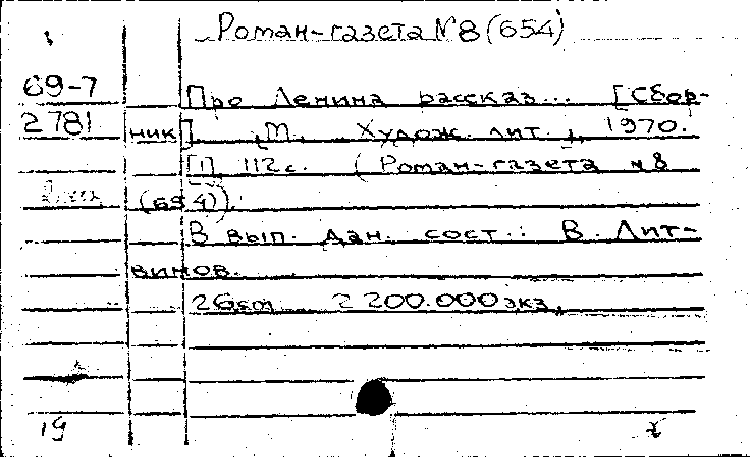 Роман-газета №8 (654)
69-7
2781
Про Ленина рассказ... [Сбор-
ник]. [М., Худож. лит.], 1970.
[1] 112 с. (Роман-газета №8
(654)).
В вып. дан. сост.: В. Лит-
винов.
26 см 2 200.000 экз.
19